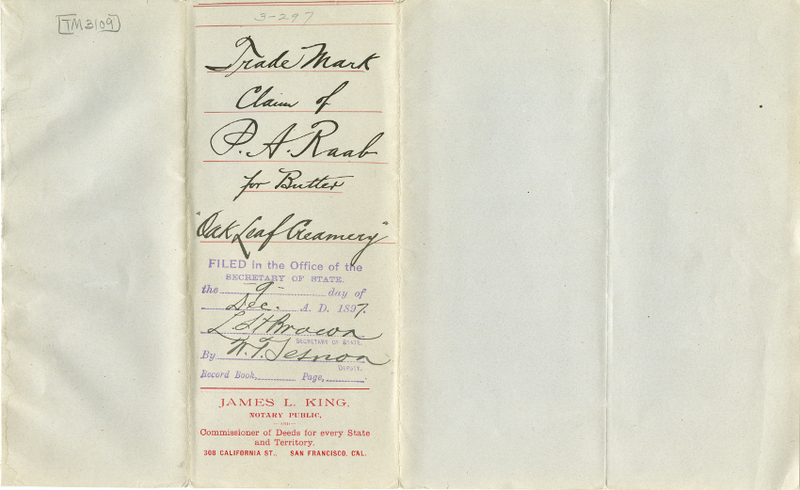 TM3109
3-297
Trade Mark
Claim of
P. A. Raab
for Butter
"Oak Leaf Creamery"
FILED in the Office of the
SECRETARY OF STATE.
the 9 day of
Dec. A. D. 1897.
L. H. Brown
SECRETARY OF STATE.
By W. T. Sesnon
DEPUTY.
Record Book, Page,
JAMES L. KING,
NOTARY PUBLIC,
AND
Commissioner of Deeds for every State
and Territory.
308 CALIFORNIA ST., SAN FRANCISCO, CAL.